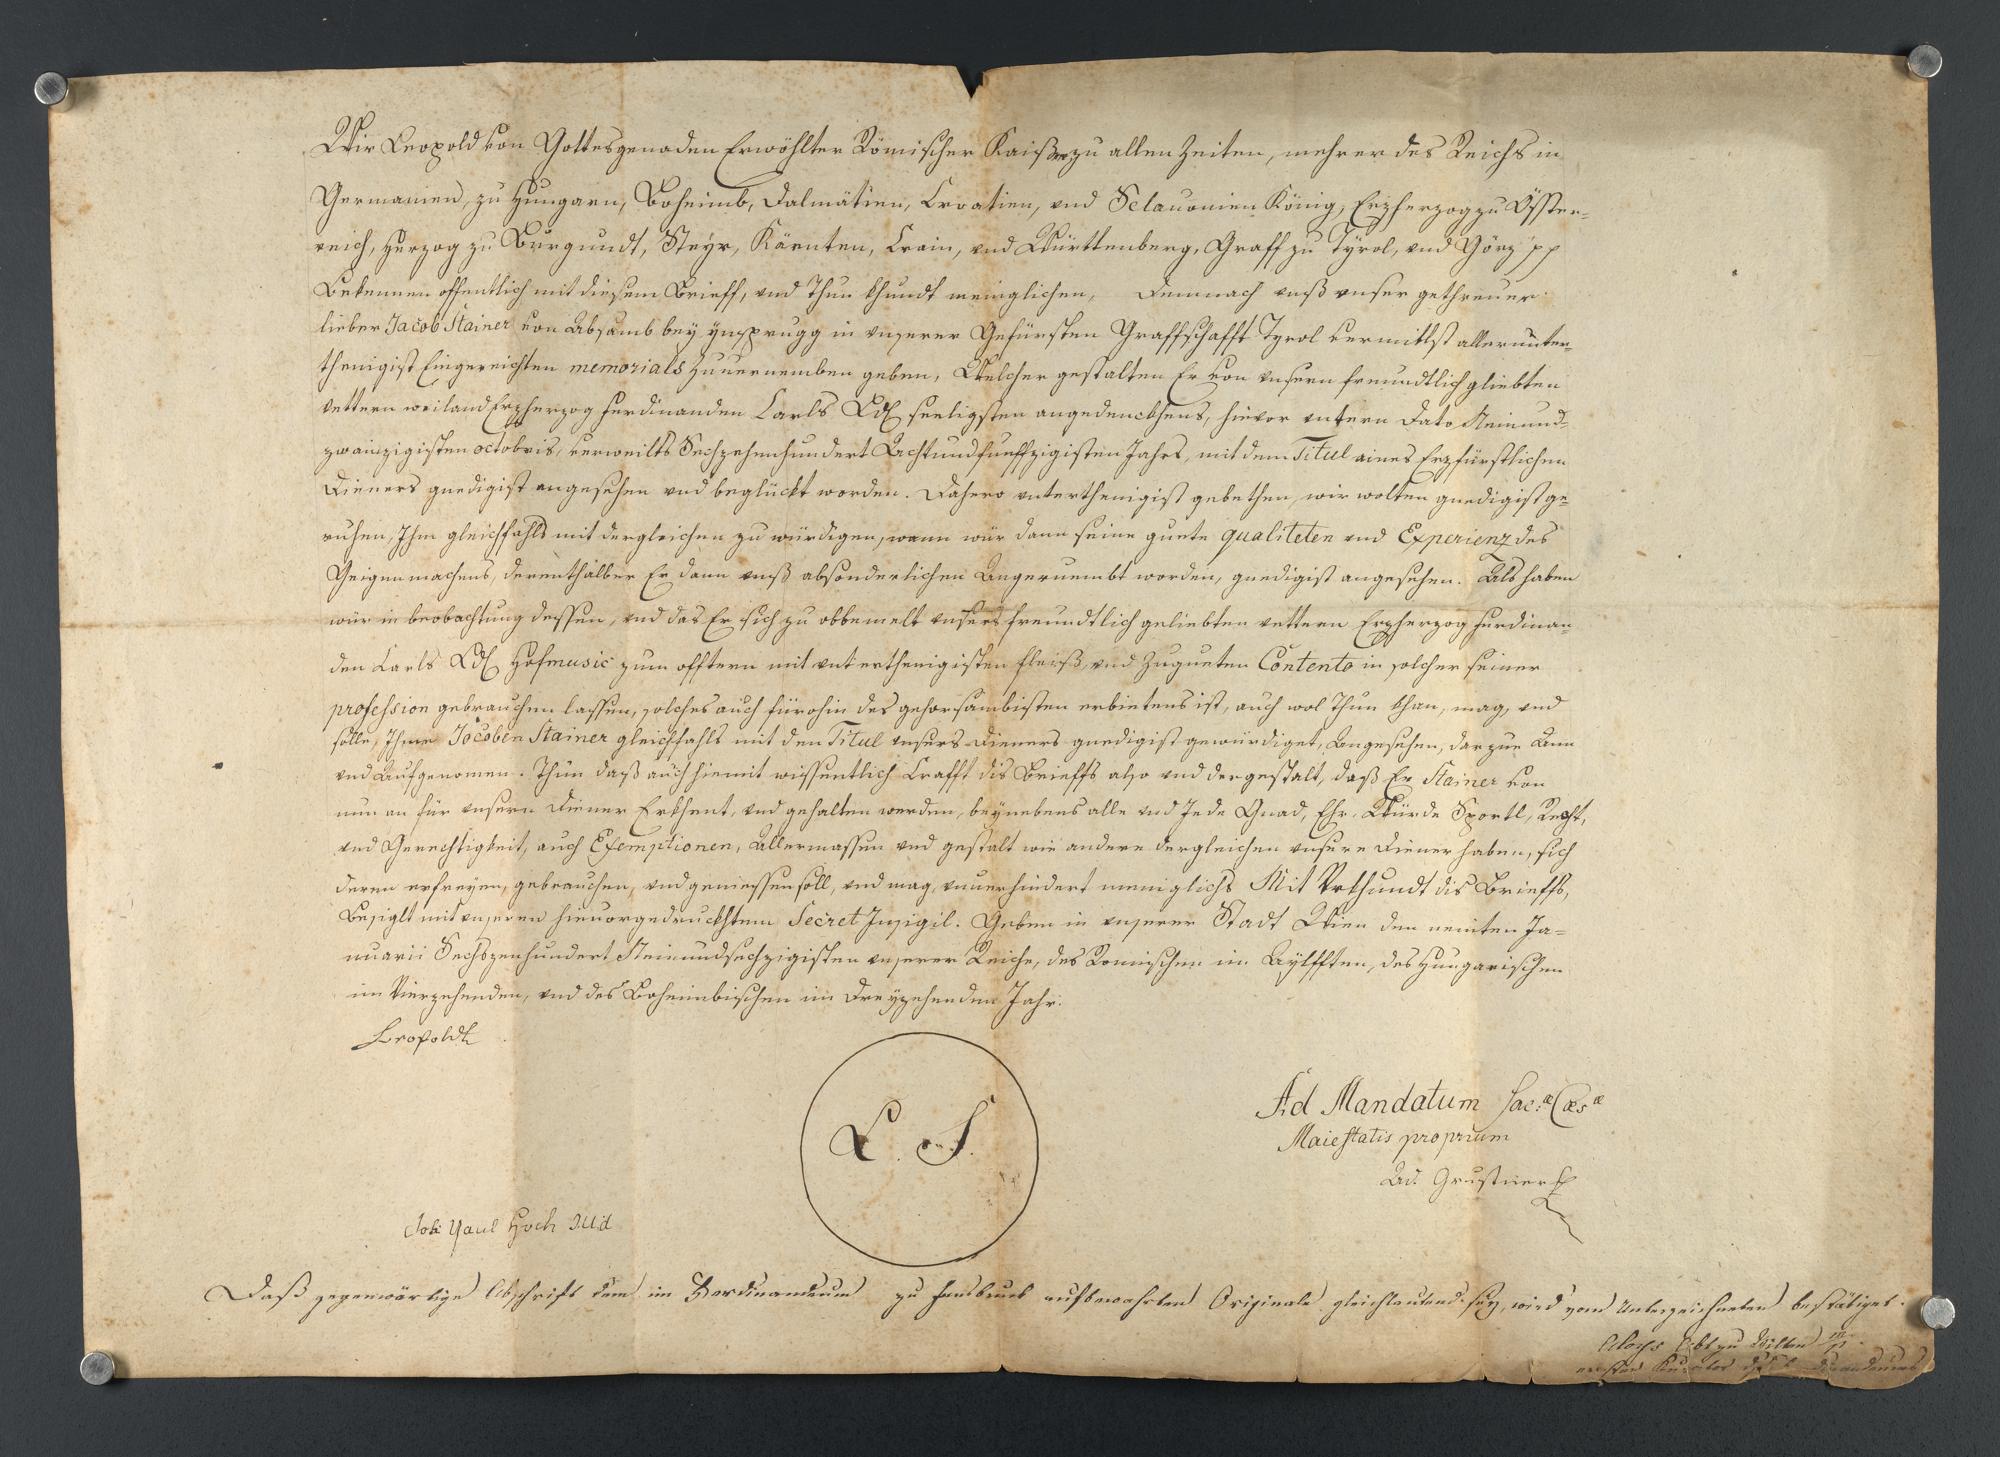 Wir Leopold von Gottesgenaden Erwöhlter Römischer Kaißer zu allen Zeiten, mehrer des Reichs in
Germanien, zu Hungarn, Boheimb, Dalmätien, Croatien, vnd Sclauonien König, Erzherzog zu Öster-
reich, Herzog zu Burgundt, Steyr, Kärnten, Crain, vnd Württenberg, Graff zu Tyrol, vnd Görz pp
Bekennen offentlich mit diesem Brieff, vnd Thun khundt meniglichen, Demnach vnß vnser gethreuer
lieber Jacob Stainer von Absamb bey Ynsprugg in vnserer Gefürsten Graffschafft Tyrol vermitlst allerunter-
thenigist Eingereichten memorials zuuernemben geben, Welcher gestalten Er von vnsern freundtlich gliebten
vettern weiland Erzherzog Ferdinanden Carls Ld seeligsten angedenckhens, hievor vntern Dato Neinund-
zwainzigisten octobris, verweilts Sechzehenhundert Achtundfunffzigisten Jahrs, mit dem Titul eines Erzfürstlichen
Dieners gnedigist angesehen vnd beglückt worden. Dahero vnterthenigist gebethen, wir wolten gnedigist ge-
ruhen, Ihm gleichfahls mit dergleichen zu würdigen, wann wür dann seine guete qualiteten vnd Experienz des
Geigenmachens, derenthalber Er dann vnß absonderlichen Angeruembt worden, gnedigist angesehen. Als haben
wür in beobachtung dessen, vnd das Er sich zu obbemelt vnsers freundtlich geliebten vettern Erzherzog Ferdinan-
den Carls Ld Hofmusic zum offtern mit vnterthenigisten fleiß, vnd Zugueten Contento in solcher seiner
profession gebrauchen lassen, solches auch fürohin des gehorsambisten erbietens ist, auch wol Thun khan, mag, vnd
solle, Ihme Jocoben Stainer gleichfahls mit den Titul vnsers Dieners gnedigist gewürdiget, Angesehen, darzue Ann
vnd Aufgenomen. Thun daß auch hiemit wissentlich Crafft dis Brieffs also vnd dergestalt, daß Er Stainer von
nun an für vnsern Diener Erkhent, vnd gehalten werden, beynebens alle vnd Jede Gnad, Ehr, Würde Sportl, Recht,
vnd Gerechtigkeit, auch Exemptionen, Allermassen vnd gestalt wie andere dergleichen vnsere Diener haben, sich
deren erfreyen, gebrauchen, vnd geniessen soll, vnd mag, vnuerhindert meniglichs Mit Vrkhundt dis Brieffs,
Besiglt mit vnseren hieuorgedruckhtem Secret Insigil. Geben in vnserer Stadt Wien den neinten Ja-
nuarii Sechszenhundert Neinundsechzigisten vnserer Reiche, des Romischen im Aylfften, des Hungarischen
im Vierzehenden, vnd des Boheimbischen im Dreyzehenden Jahr.
Leopoldt
L. S.
Ad Mandatum Sac:æ Cæsæ
Maiestatis proprium
Ad. Grustner
Joh: Paul Hoch
Daß gegenwärtige Abschrift dem im Ferdinandeum zu Innsbruck aufbewahrten Originale gleichlautend sey, wird vom Unterzeichneten bestätiget.
Aloys Abt zu Wilten